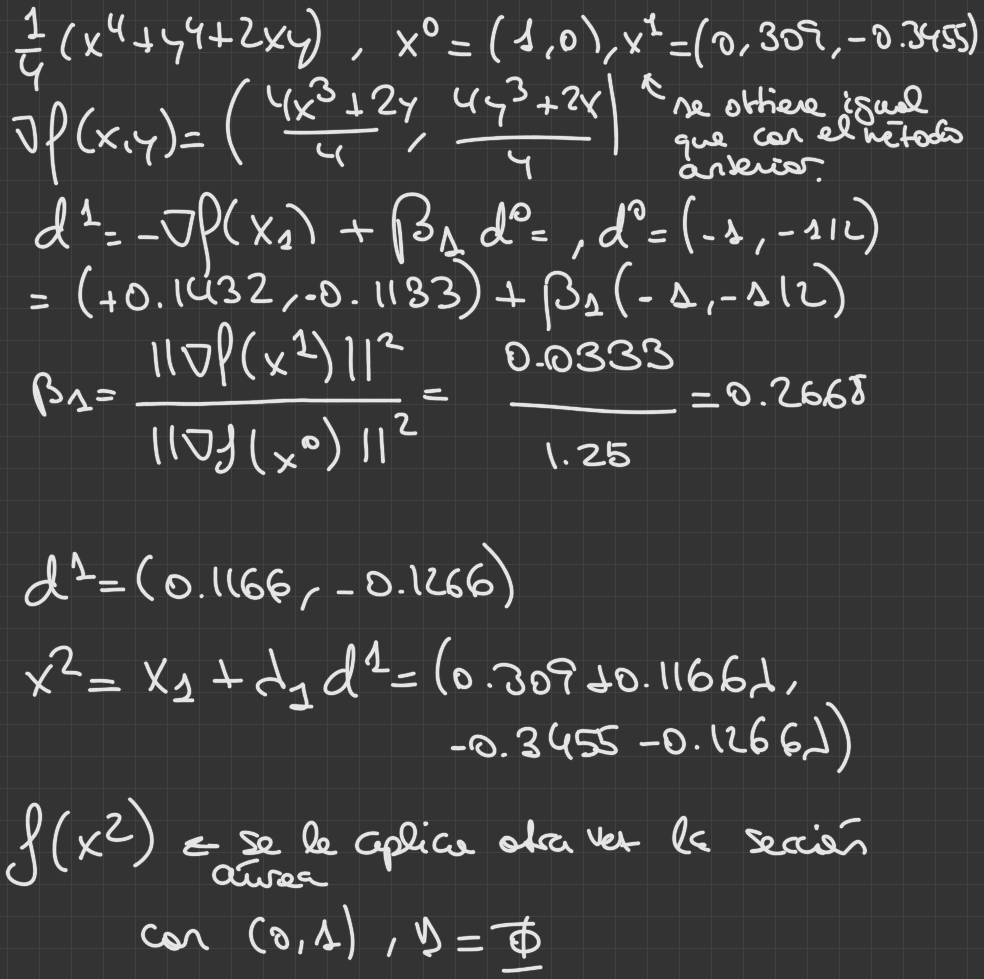 1/4 (x⁴+y⁴+2xy), x⁰=(1,0), x¹=(0,309,-0.3455)
∇f(x,y)=(4x³+2y/4, 4y³+2x/4) ↖ se obtiene igual
que con el método
anterior.
d¹=-∇f(x₁)+β₁d⁰=, d⁰=(-1,-1/2)
=(+0.1432,-0.1133)+β₁(-1,-1/2)
β₁= ||∇f(x¹)||² / ||∇f(x⁰)||² = 0.0333 / 1.25 = 0.2668
d¹=(0.1166,-0.1266)
x²=x₁+λ₁d¹=(0.309+0.1166λ,
-0.3455-0.1266λ)
f(x²) ← se le aplica otra vez la sección
aúrea
con (0,1), y=Φ